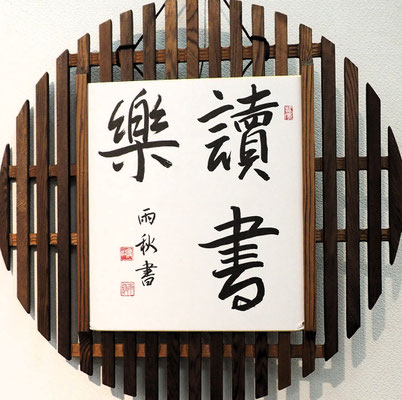 讀書
樂
雨秋書